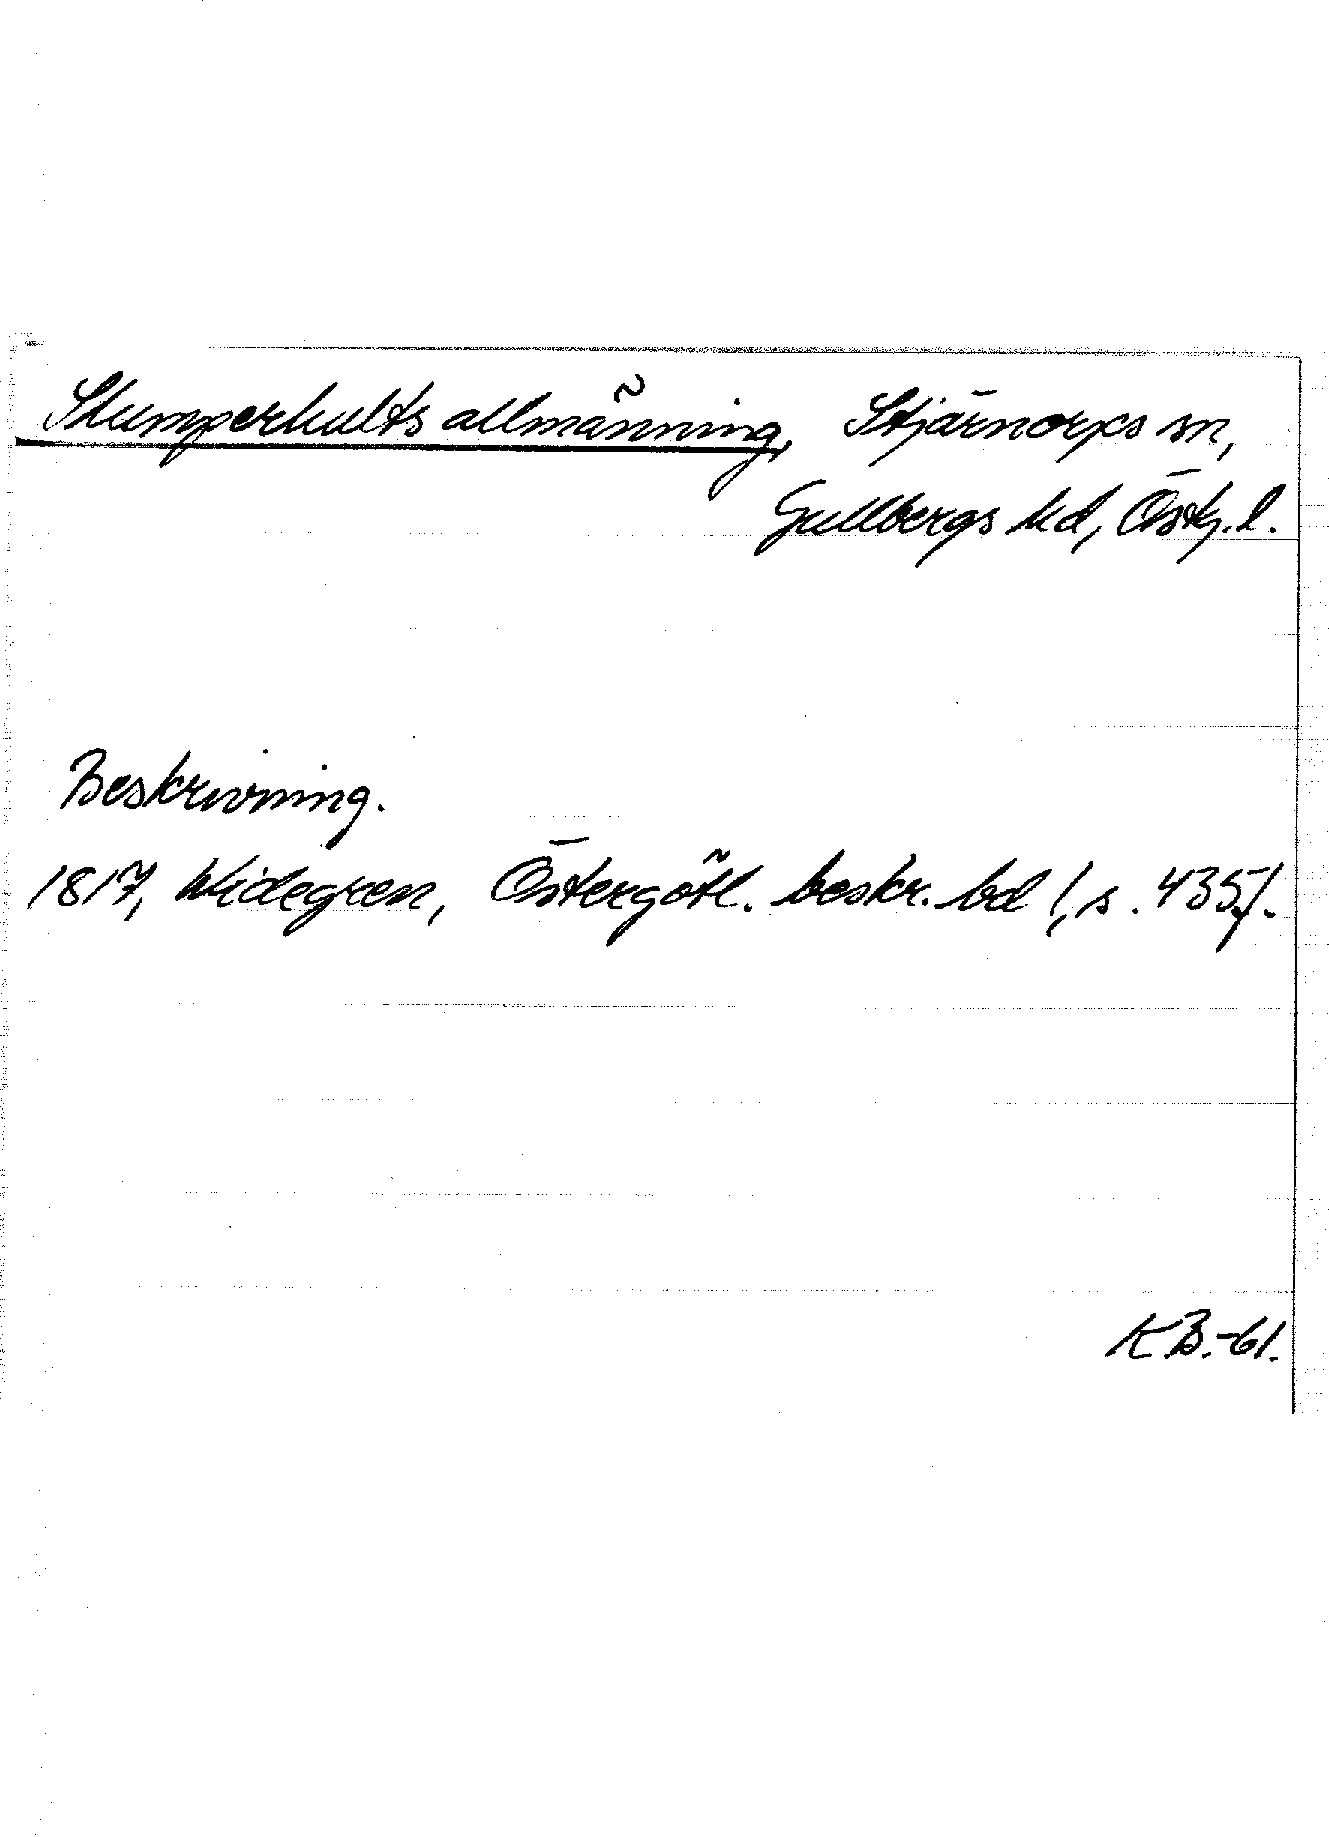 Skumperhults allmänning, Stjärnorps sn,
Gullbergs hd, Östg. l.
Beskrivning.
1817, Widegren, Östergötl. beskr. bd 1, s. 435f.
K.B.-61.